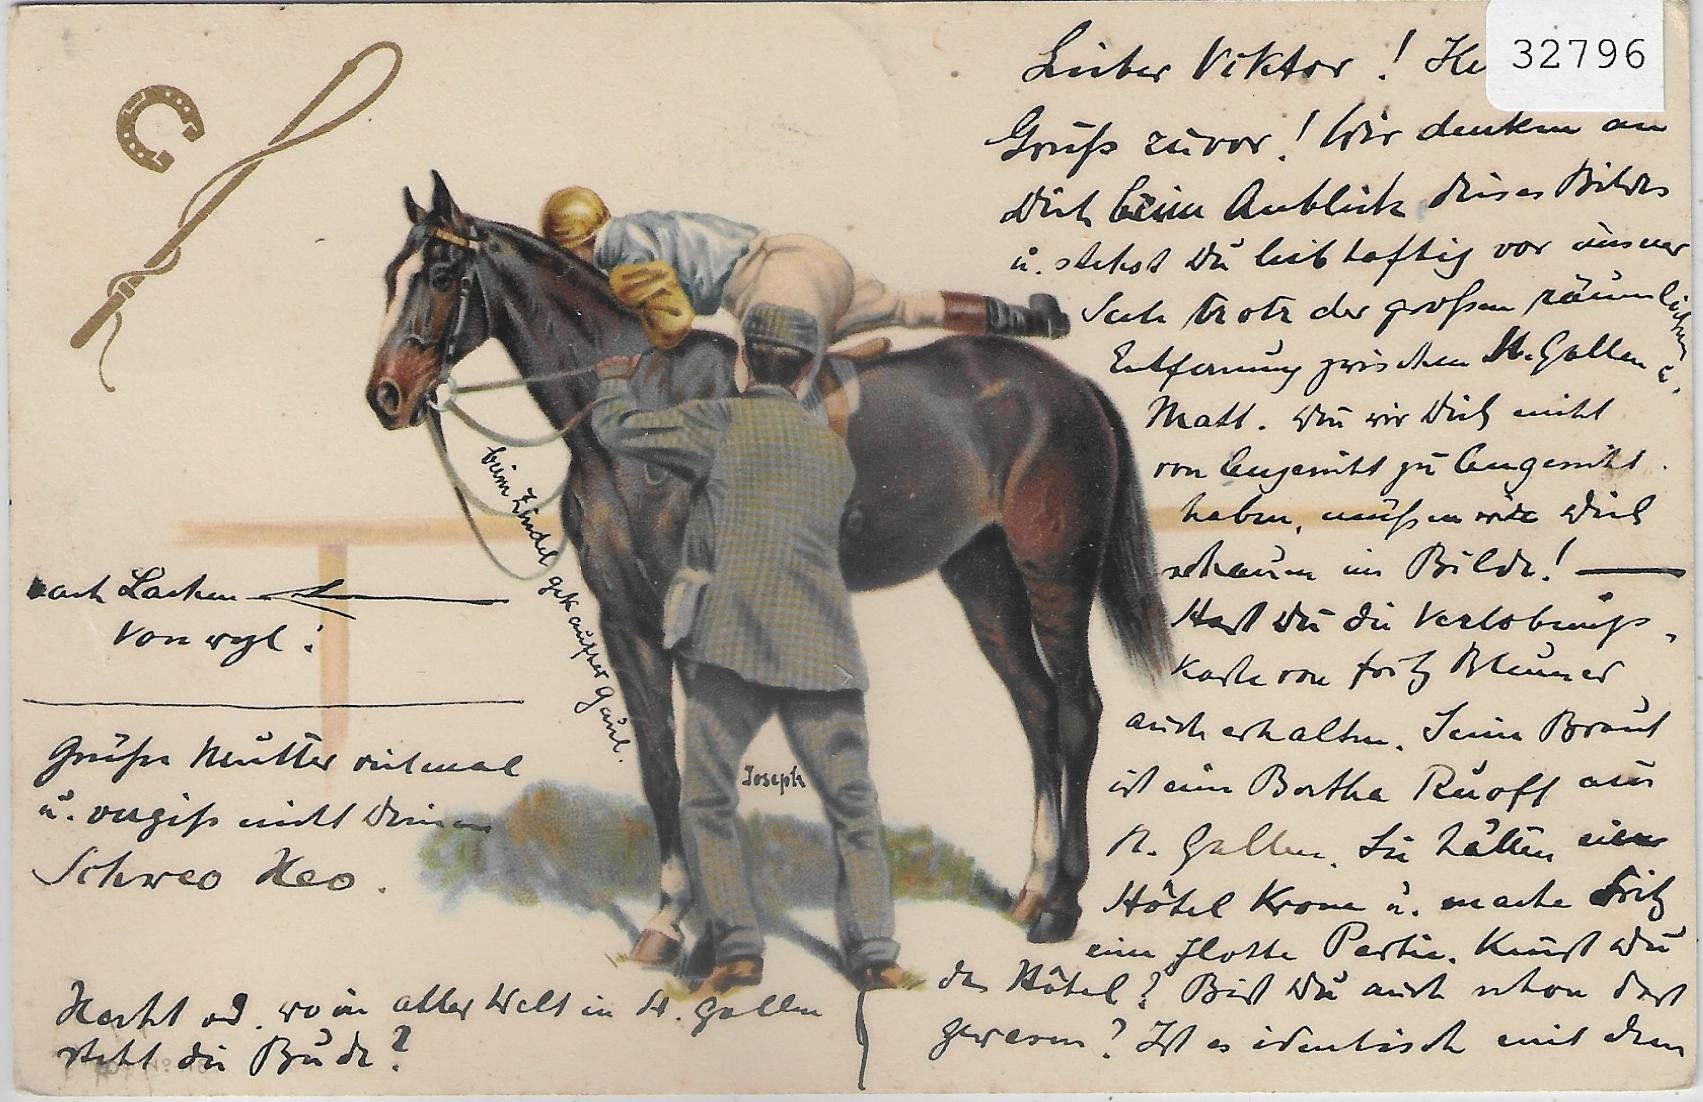 32796
Lieber Viktor!
Gruß zuvor! Wir denken an
Dich beim Anblick dieses Bildes
u. stehst Du leibhaftig vor unserer
Seele trotz der großen räumlichen
Entfernung zwischen St. Gallen u.
Matt. Da wir Dich nicht
von Angesicht zu Angesicht
haben, müßen wir Dich
schauen im Bilde! —
Hast Du die Verlobungs-
karte von Fritz Blumer
auch erhalten. Seine Braut
ist eine Bertha Ruoff aus
St. Gallen. Sie hätten ein
Hôtel Krone u. mache Fritz
eine flotte Partie. Kennst Du
das Hôtel? Bist Du auch schon dort
gewesen? Ist es identisch mit dem
Hecht od. wo in aller Welt in St. Gallen
steht die Bude?
beim Zündel gekaufter Gaul.
Joseph
nach Lachen
von wyl:
Grüße Mutter vielmal
u. vergiß nicht Deinen
Schweo Heo.